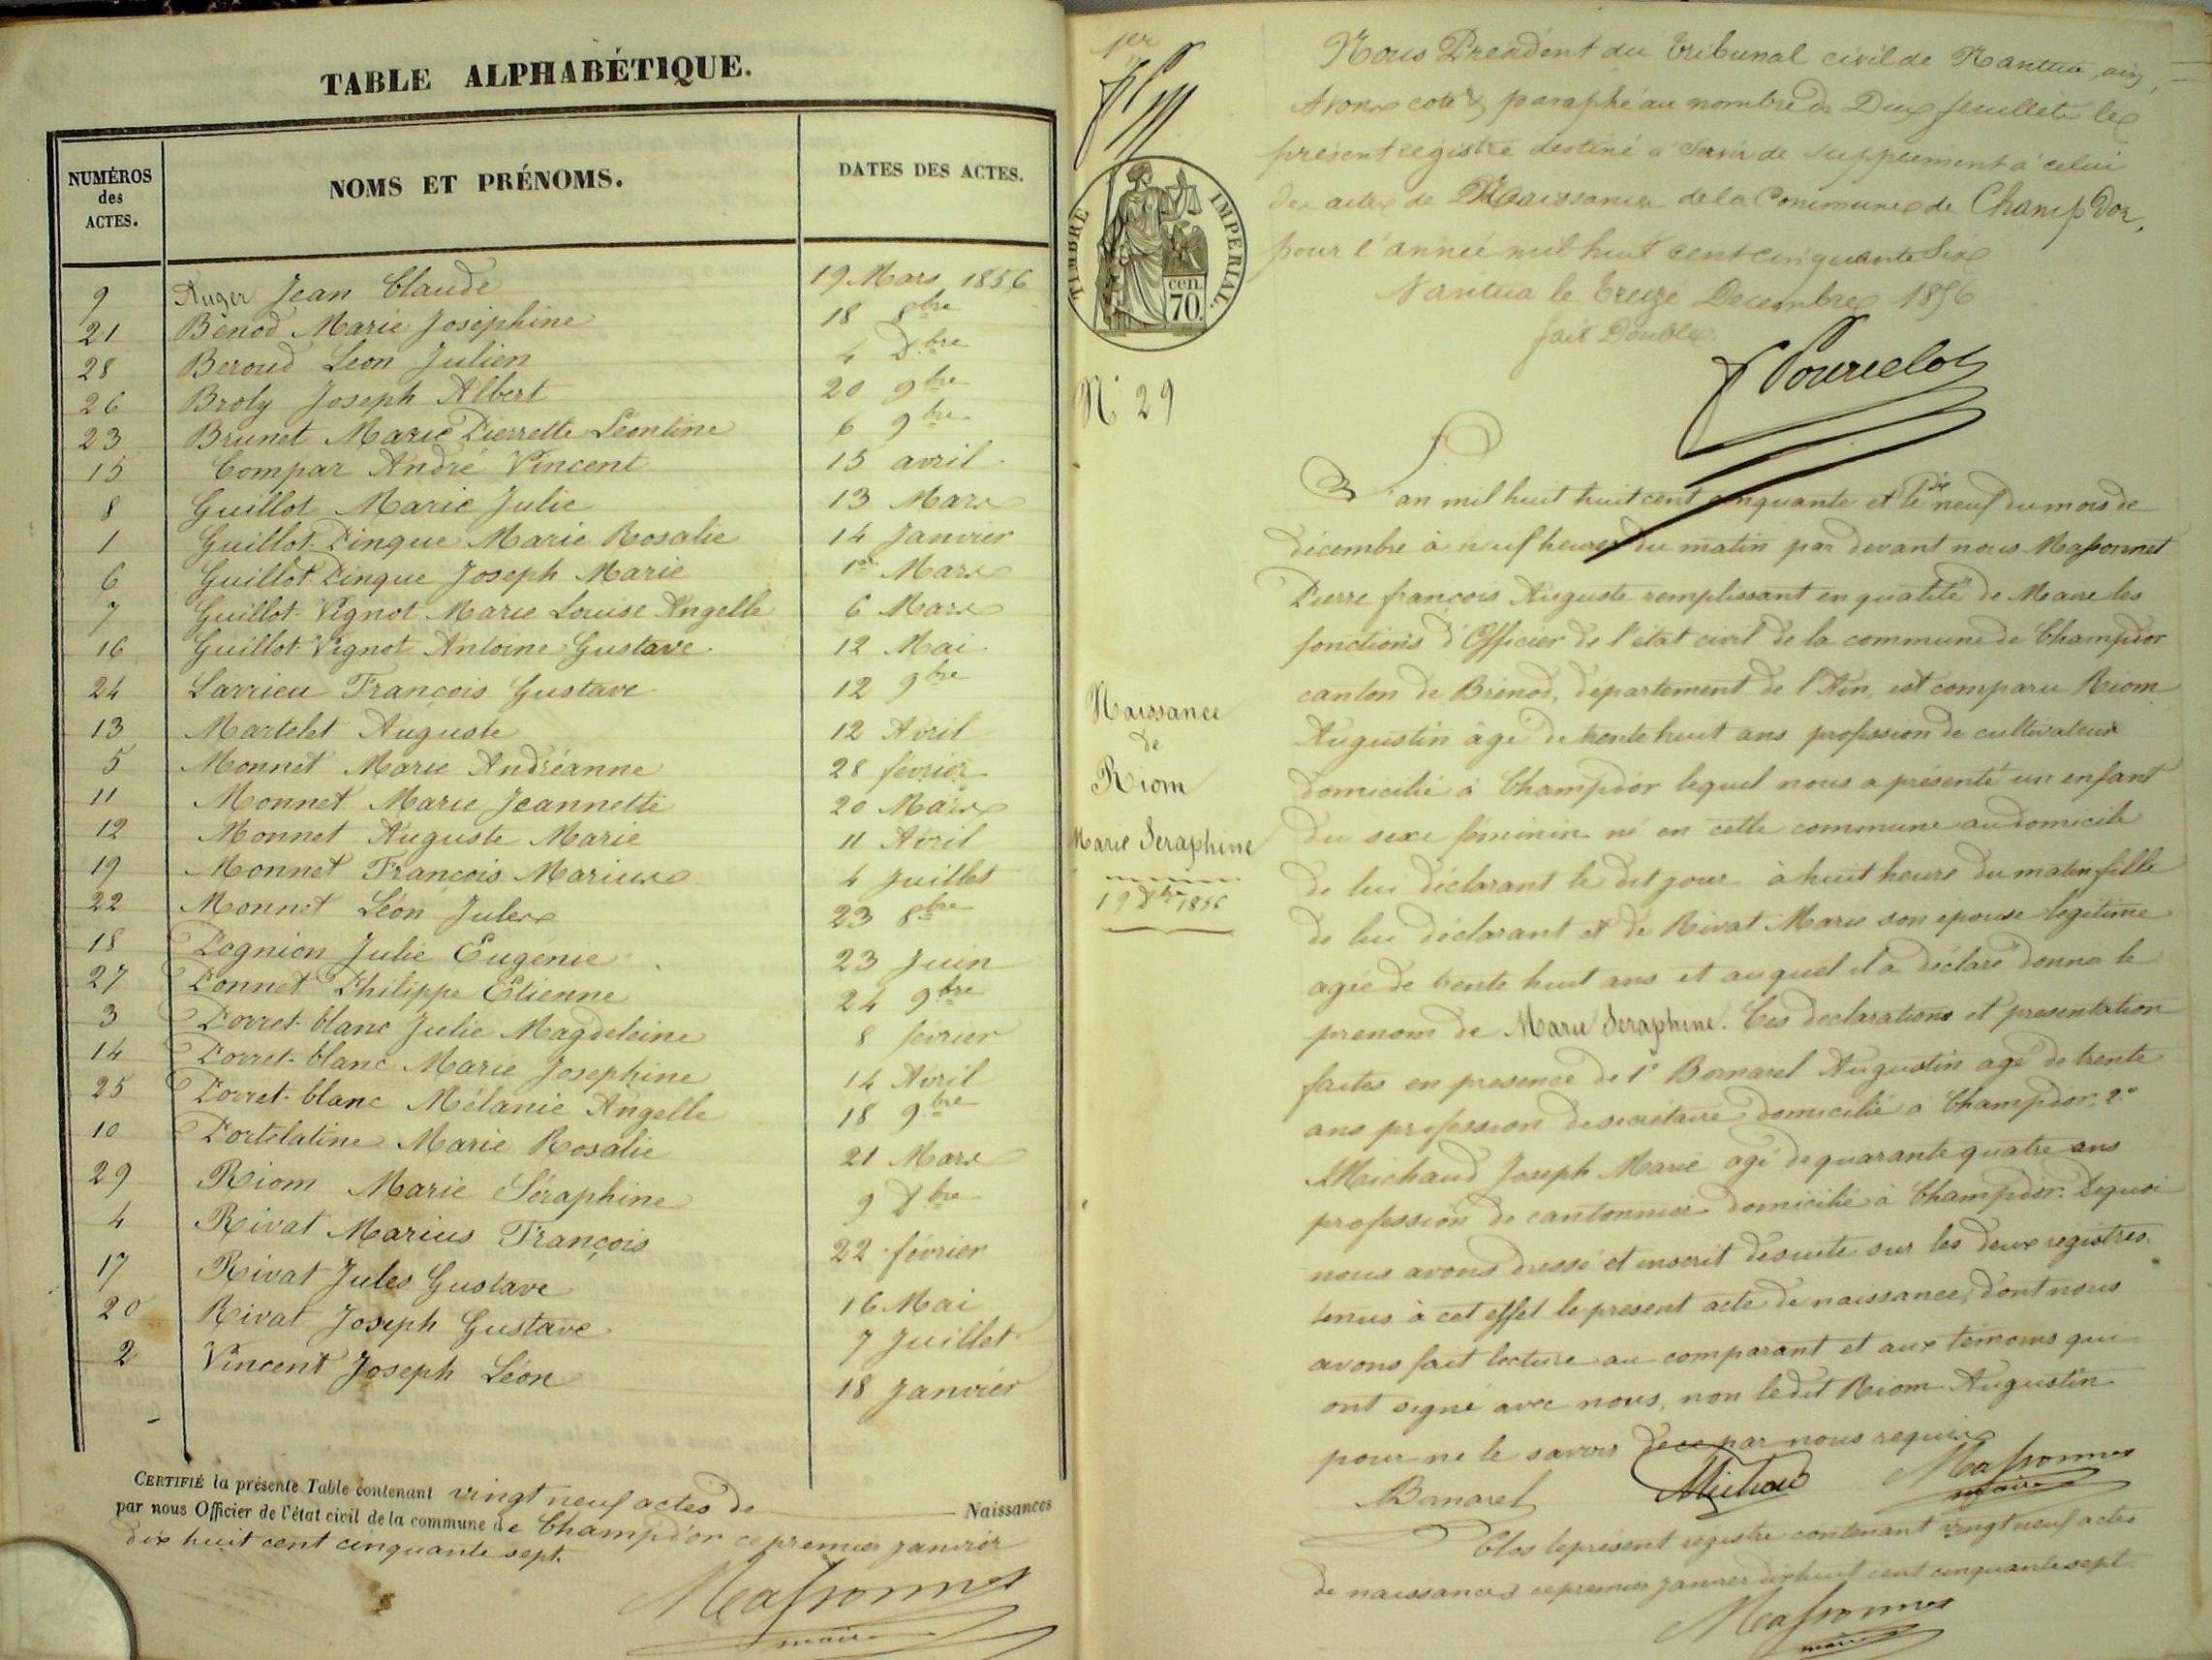 TABLE ALPHABÉTIQUE.
NUMÉROS des ACTES. NOMS ET PRÉNOMS. DATES DES ACTES.
9 Auger Jean Claude 19 Mars 1856
21 Bénod Marie Joséphine 18 8bre
28 Beroud Leon Julien 4 Xbre
26 Broly Joseph Albert 20 9bre
23 Brunet Marie Pierrette Léontine 6 9bre
15 Compar André Vincent 15 avril
8 Guillot Marie Julie 13 Mars
1 Guillot-Pinque Marie Rosalie 14 Janvier
6 Guillot Pinque Joseph Marie 1er Mars
7 Guillot-Vignot Marie Louise Angelle 6 Mars
16 Guillot Vignot Antoine Gustave 12 Mai
24 Larrieu François Gustave 12 9bre
13 Martelet Auguste 12 Avril
5 Monnet Marie Andréanne 28 février
11 Monnet Marie Jeannette 20 Mars
12 Monnet Auguste Marie 11 Avril
19 Monnet François Marius 4 Juillet
22 Monnet Léon Jules 23 8bre
18 Pognion Julie Eugénie 23 Juin
27 Ponnet Philippe Etienne 24 9bre
3 Porret-blanc Julie Magdeleine 8 février
14 Porret-blanc Marie Josephine 14 Avril
25 Porret-blanc Mélanie Angelle 18 9bre
10 Portelatine Marie Rosalie 21 Mars
29 Riom Marie Séraphine 9 Xbre
4 Rivat Marius François 22 février
17 Rivat Jules Gustave 16 Mai
20 Rivat Joseph Gustave 7 Juillet
2 Vincent Joseph Léon 18 Janvier
CERTIFIÉ la présente Table contenant vingt neuf actes de Naissances
par nous Officier de l'état civil de la commune de Champdor ce premier janvier
dix huit cent cinquante sept.
Massonnet
maire
1er
TIMBRE IMPERIAL.
cen. 70.
Nous Président du tribunal civil de Nantua, ain,
Avons coté & paraphé au nombre de Deux feuillets le
présent registre destiné à servir de supplement à celui
des actes de Naissance de la Commune de Champdor,
pour l'année mil huit cent cinquante Six
Nantua le treize Decembre 1856
fait Double.
Pourcelot
N° 29
Naissance
de
Riom
Marie Seraphine
19 Xbre 1856
L'an mil huit huit cent cinquante et le dix neuf du mois de
décembre à neuf heures du matin par devant nous Massonnet
Pierre françois Auguste remplissant en qualité de Maire les
fonctions d'Officier de l'état civil de la commune de Champdor
canton de Brénod, département de l'Ain, est comparu Riom
Augustin âgé de trente huit ans profession de cultivateur
domicilié à Champdor lequel nous a présenté un enfant
du sexe féminin né en cette commune au domicile
de lui déclarant le dit jour à huit heure du matin fille
de lui déclarant et de Rivat Marie son épouse légitime
agée de trente huit ans et auquel il a déclaré donner le
prenom de Marie Seraphine. Ces declarations et presentation
faites en presence de 1° Bornarel Augustin agé de trente
ans profession de secrétaire domicilié à Champdor, 2°
Michaud Joseph Marie agé de quarante quatre ans
profession de cantonnier domicilié à Champdor. De quoi
nous avons dressé et inscrit de suite sur les deux registres
tenus à cet effet le présent acte de naissance, dont nous
avons fait lecture au comparant et aux témoins qui
ont signé avec nous, non le dit Riom Augustin
pour ne le savoir de ce par nous requis
Bornarel Michaud Massonnet
maire
Clos le présent registre contenant vingt neuf actes
de naissances ce premier janvier dix huit cent cinquante sept.
Massonnet
maire